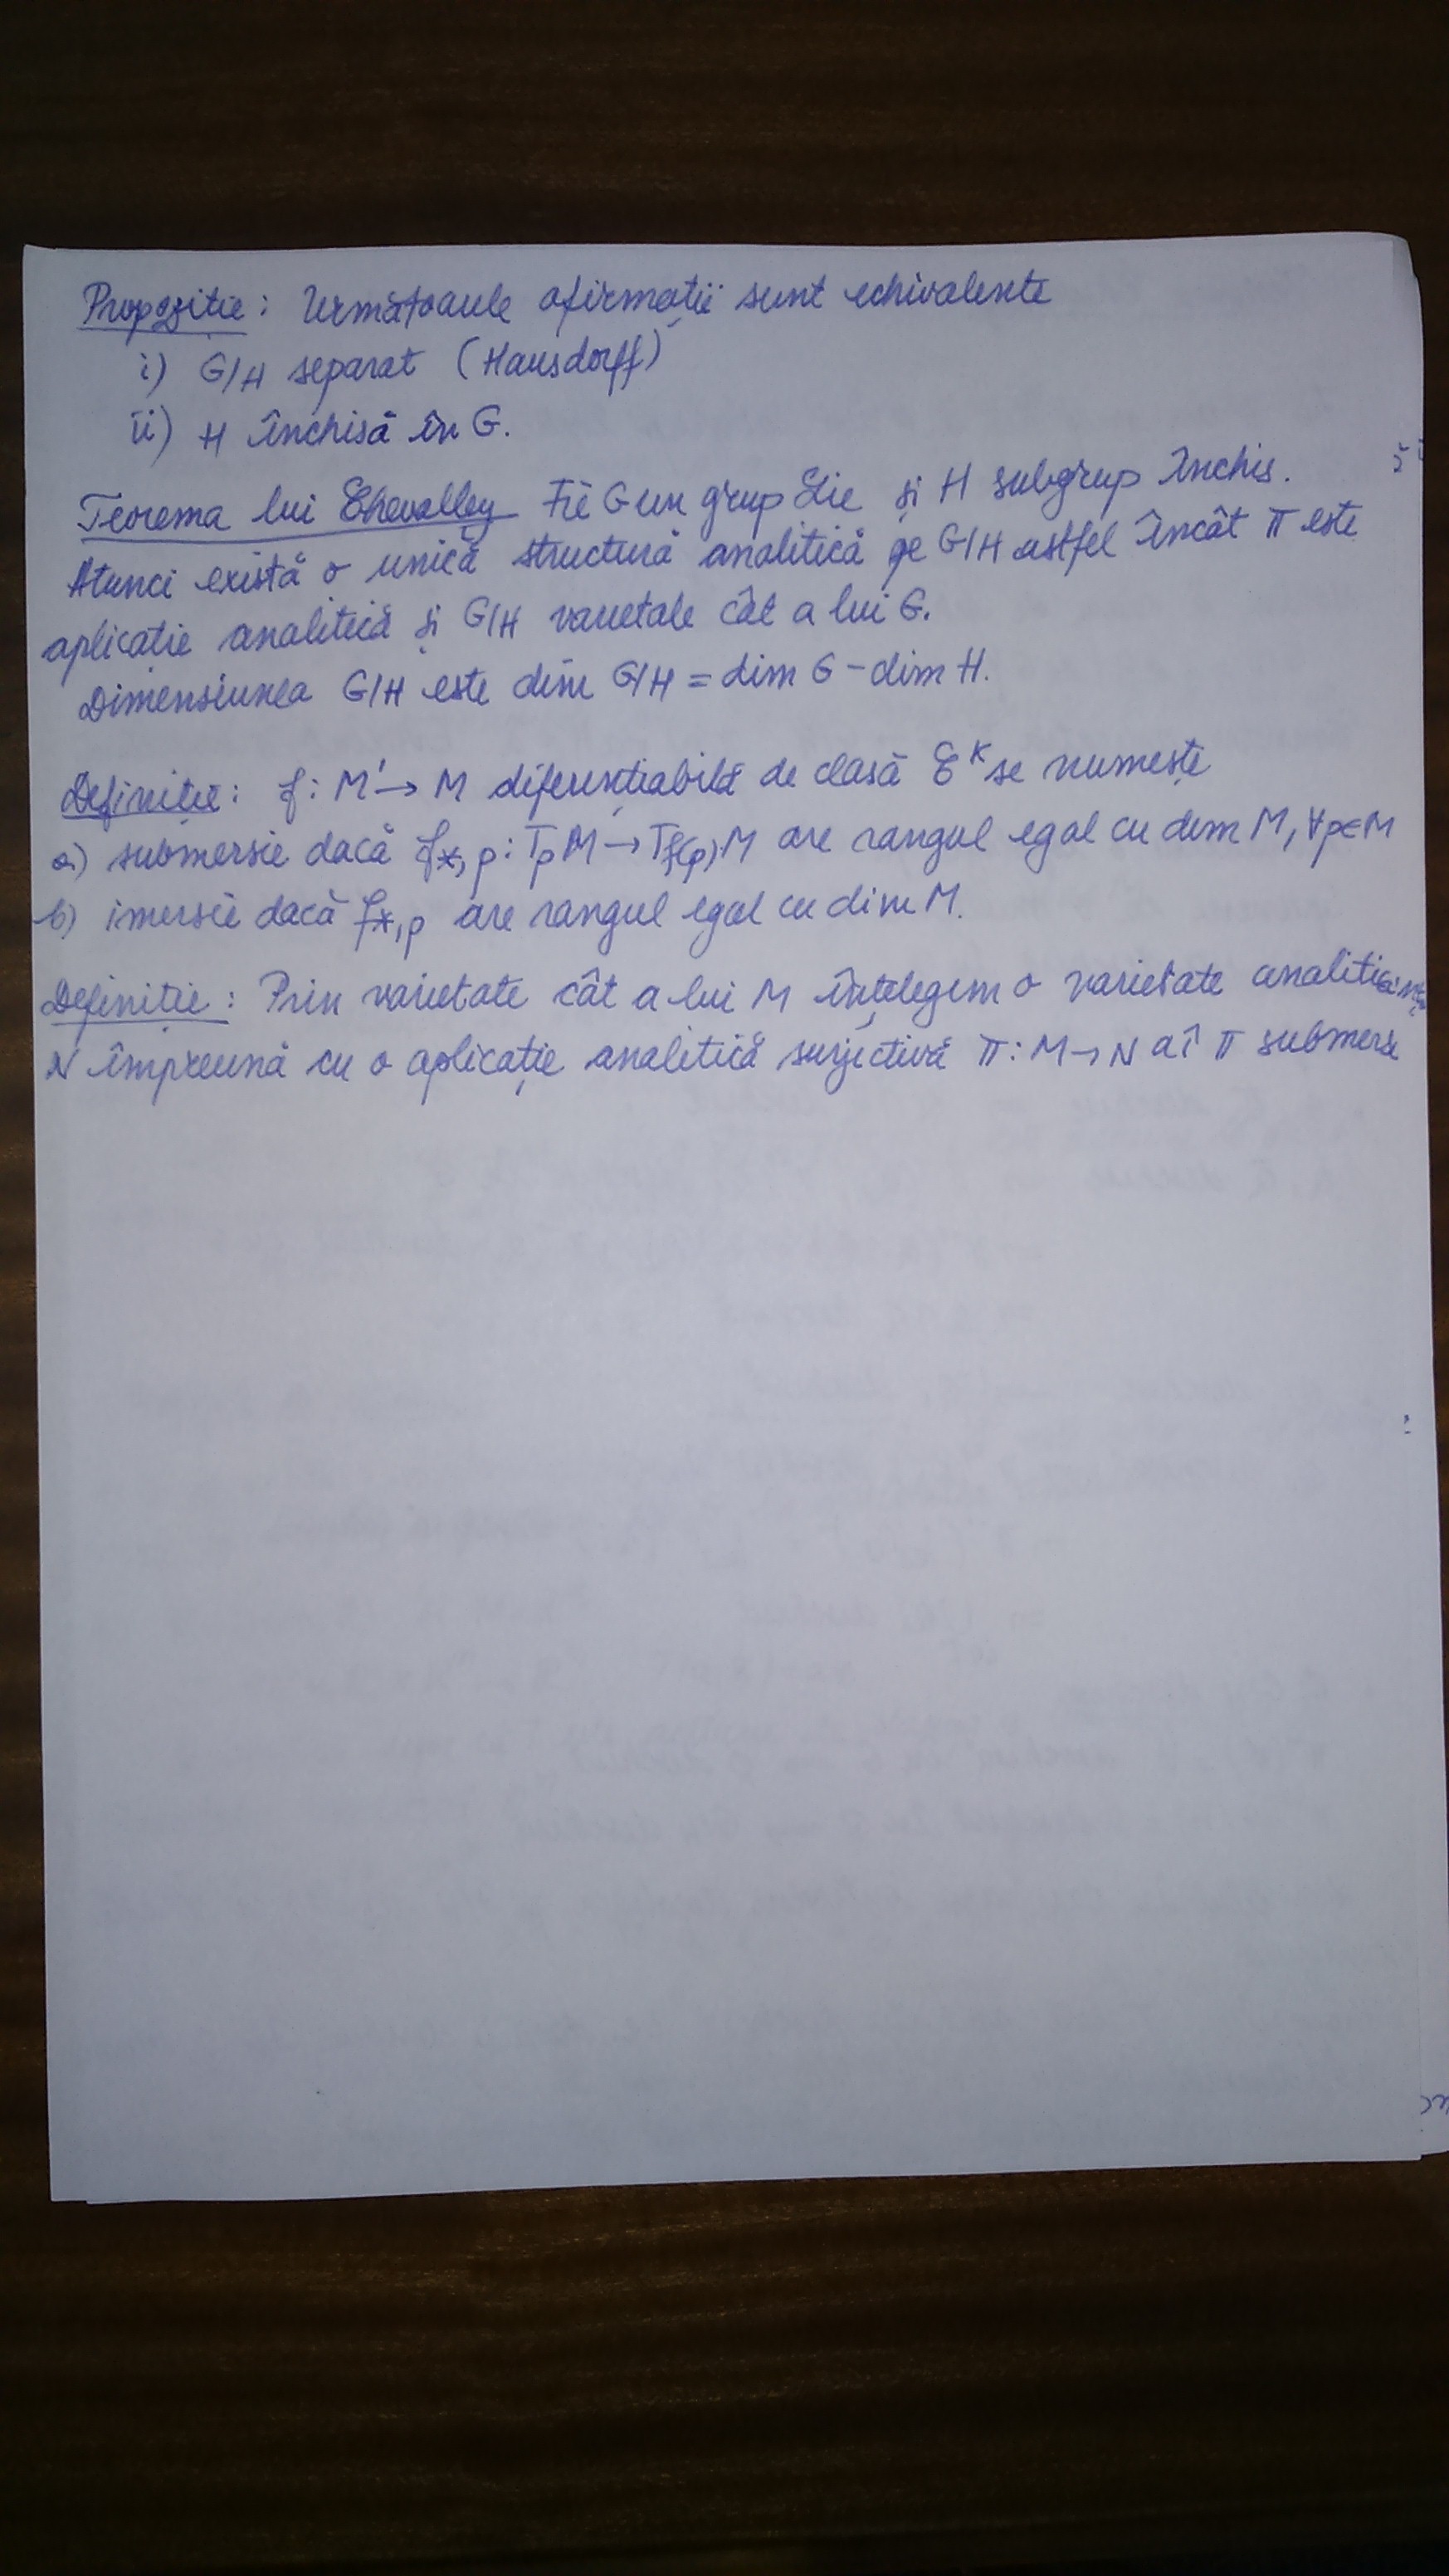 Propoziție: Următoarele afirmații sunt echivalente
i) G/H separat (Hausdorff)
ii) H închisă în G.
Teorema lui Chevalley Fie G un grup Lie și H subgrup închis.
Atunci există o unică structură analitică pe G/H astfel încât π este
aplicație analitică și G/H varietate cât a lui G.
Dimensiunea G/H este dim G/H = dim G - dim H.
Definiție: f: M' → M diferențiabilă de clasă C^k se numește
a) submersie dacă f*,p : TpM → Tf(p)M are rangul egal cu dim M, ∀p∈M
b) imersie dacă f*,p are rangul egal cu dim M.
Definiție: Prin varietate cât a lui M înțelegem o varietate analitică
N împreună cu o aplicație analitică surjectivă π: M → N aî π submersie